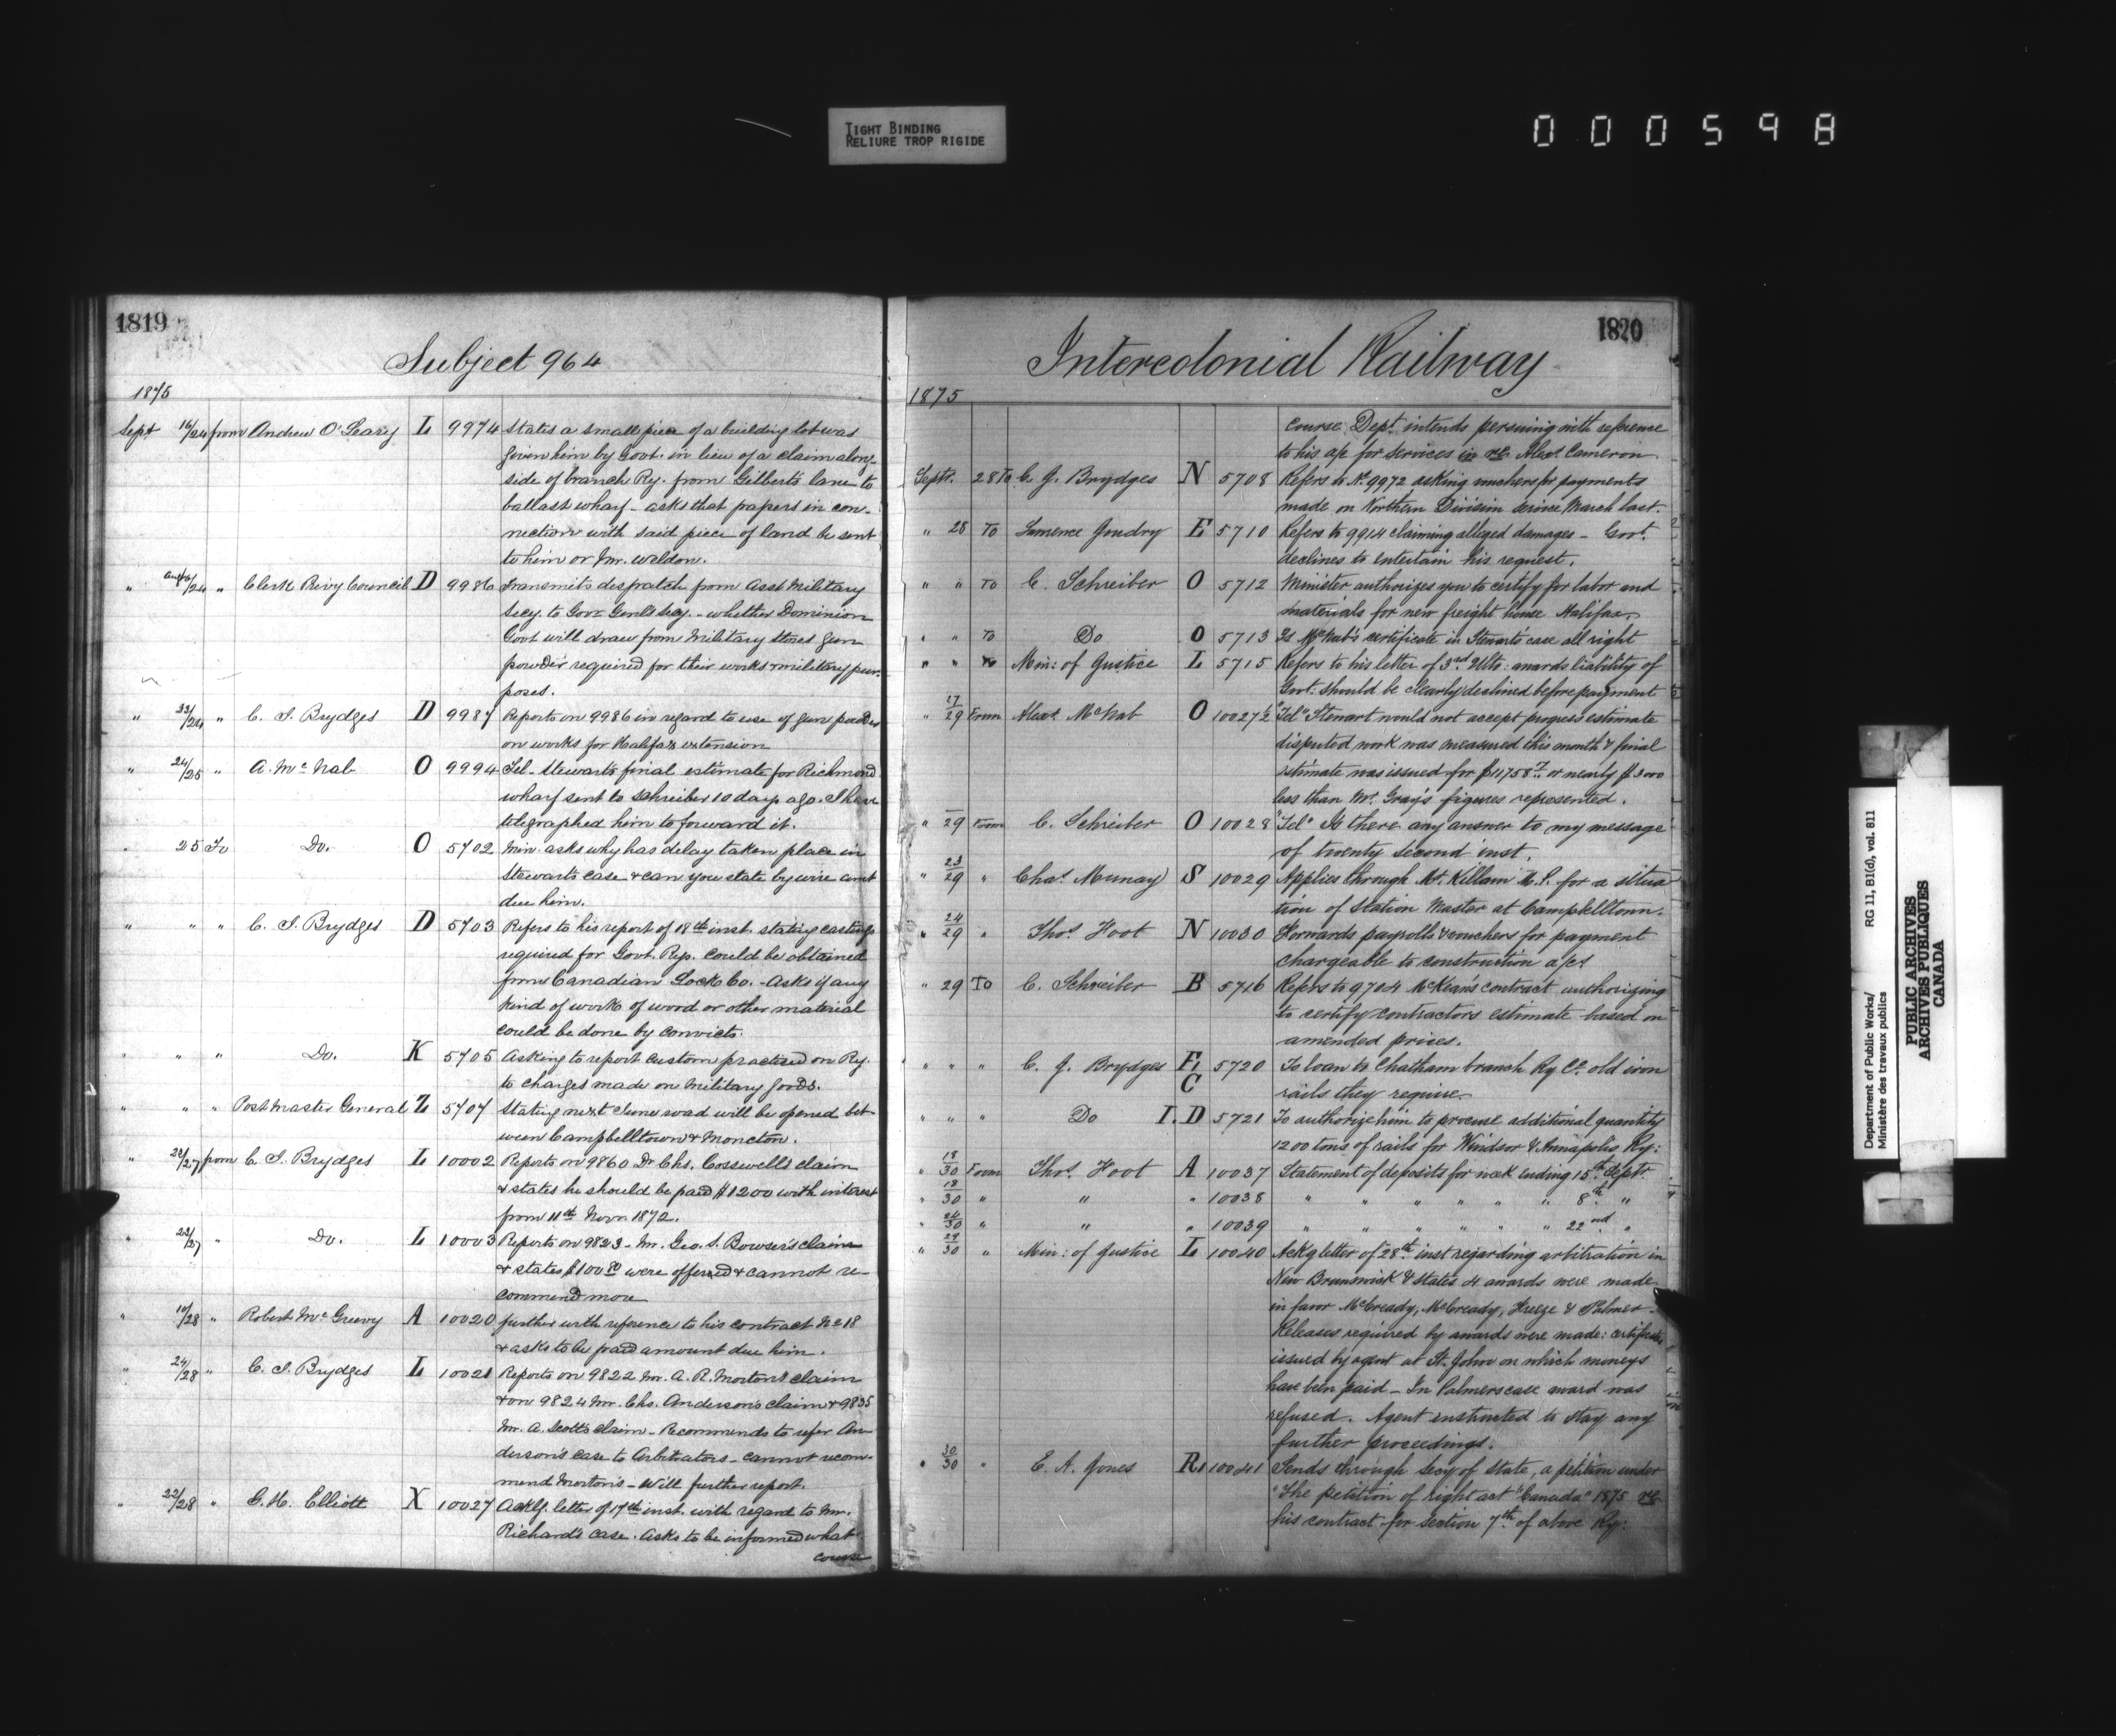 TIGHT BINDING
RELIURE TROP RIGIDE
000598
1819
Subject 964
1875
Sept 16/24 from Andrew O'Leary L 9974 States a small piece of a building lot was
given him by Govt. in lieu of a claim along-
side of branch Ry. from Gilbert's lane to
ballast wharf - asks that papers in con-
nection with said piece of land be sent
to him or Mr. Weldon.
" Aug 16/24 " Clerk Privy Council D 9986 Transmits despatch from Asst Military
Secy. to Govr Genl's Secy. - whether Dominion
Govt will draw from Military Stores gun
powder required for their works & military pur-
poses.
" 23/24 " C. J. Brydges D 9987 Reports on 9986 in regard to use of gun powder
on works for Halifax extension
" 24/25 " A. McNab O 9994 Tel - Stewart's final estimate for Richmond
wharf sent to Schreiber 10 days ago. I have
telegraphed him to forward it.
" 25 To Do. O 5702 Min. asks why has delay taken place in
Stewart's case & can you state by wire amt
due him.
" " " C. J. Brydges D 5703 Refers to his report of 18th inst. stating castings
required for Govt. Rys. could be obtained
from Canadian Lock Co. - Asks if any
kind of work of wood or other material
could be done by convicts.
" " " Do. K 5705 Asking to report custom practised on Ry.
to charges made on Military goods.
" " " Post Master General Z 5707 Stating next June road will be opened bet-
ween Campbelltown & Moncton.
" 22/27 from C. J. Brydges L 10002 Reports on 9860 Dr Chs. Cosswell's claim
& states he should be paid $1200 with interest
from 11th Novr. 1872.
" 22/27 " Do. L 10003 Reports on 9823 - Mr. Geo. S. Bowser's claim
& states $100 80 were offered & cannot re-
commend more
" 10/28 " Robert McGreevy A 10020 further with reference to his contract No 18
& asks to be paid amount due him.
" 24/28 " C. J. Brydges L 10021 Reports on 9822 Mr. A. R. Morton's claim
& on 9824 Mr. Chs. Anderson's claim & 9835
Mr. A. Scott's claim - Recommends to refer An-
derson's case to Arbitrators - cannot recom-
mend Morton's - Will further report.
" 22/28 " G. H. Elliott X 10027 Ackg. letter of 17th inst. with regard to Mr.
Richard's case. Asks to be informed what
course
1820
Intercolonial Railway
1875
course Dept. intends persuing with reference
to his a/c for services in re. Alexr Cameron
Septr. 28 To C. J. Brydges N 5708 Refers to No 9972 asking vouchers for payments
made on Northern Division since March last.
" 28 To Lawrence Goudry E 5710 Refers to 9914 claiming alleged damages - Govt.
declines to entertain his request.
" " To C. Schreiber O 5712 Minister authorizes you to certify for labor and
materials for new freight house Halifax.
" " To Do O 5713 Is McNab's certificate in Stewart's case all right
" " To Min: of Justice L 5715 Refers to his letter of 3rd Ulto: awards liability of
Govt: should be clearly declined before payment
" 17/29 From Alexr McNab O 10027½ "Tel" Stewart would not accept progress estimate
disputed work was measured this month & final
estimate was issued for $11758 7 or nearly $3000
less than Mr. Gray's figures represented.
" 29 From C. Schreiber O 10028 "Tel" Is there any answer to my message
of twenty second inst.
" 23/29 " Chas. Murray S 10029 Applies through Mr. Killam M.P. for a situa
tion of Station Master at Campbelltown.
" 24/29 " Thos. Foot N 10030 Forwards payrolls & vouchers for payment
chargeable to construction a/ct
" 29 To C. Schreiber B 5716 Refers to 9704 McKean's contract authorizing
to certify contractors estimate based on
amended prices.
" " " C. J. Brydges E, C 5720 To loan to Chatham branch Ry Co. old iron
rails they require
" " " Do I. D 5721 To authorize him to procure additional quantity
1200 tons of rails for Windsor & Annapolis Ry:
" 18/30 From Thos. Foot A 10037 Statement of deposits for week ending 15th Septr.
" 18/30 " " " 10038 " " " " " " 8th "
" 24/30 " " " 10039 " " " " " " 22nd "
" 29/30 " Min: of Justice L 10040 Ackg letter of 28th inst regarding arbitration in
New Brunswick & states 4 awards were made
in favor McCready, McCready, Freeze & Palmer.
Releases required by awards were made: certificates
issued by agent at St. John on which moneys
have been paid - In Palmers case award was
refused. Agent instructed to stay any
further proceedings.
" 30/30 " E. A. Jones R, 10041 Sends through Secy of State, a petition under
"The petition of right act "Canada" 1875 re
his contract for section 7th of above Ry:
Department of Public Works/
Ministère des travaux publics
RG 11, B1(d), vol. 811
PUBLIC ARCHIVES
ARCHIVES PUBLIQUES
CANADA